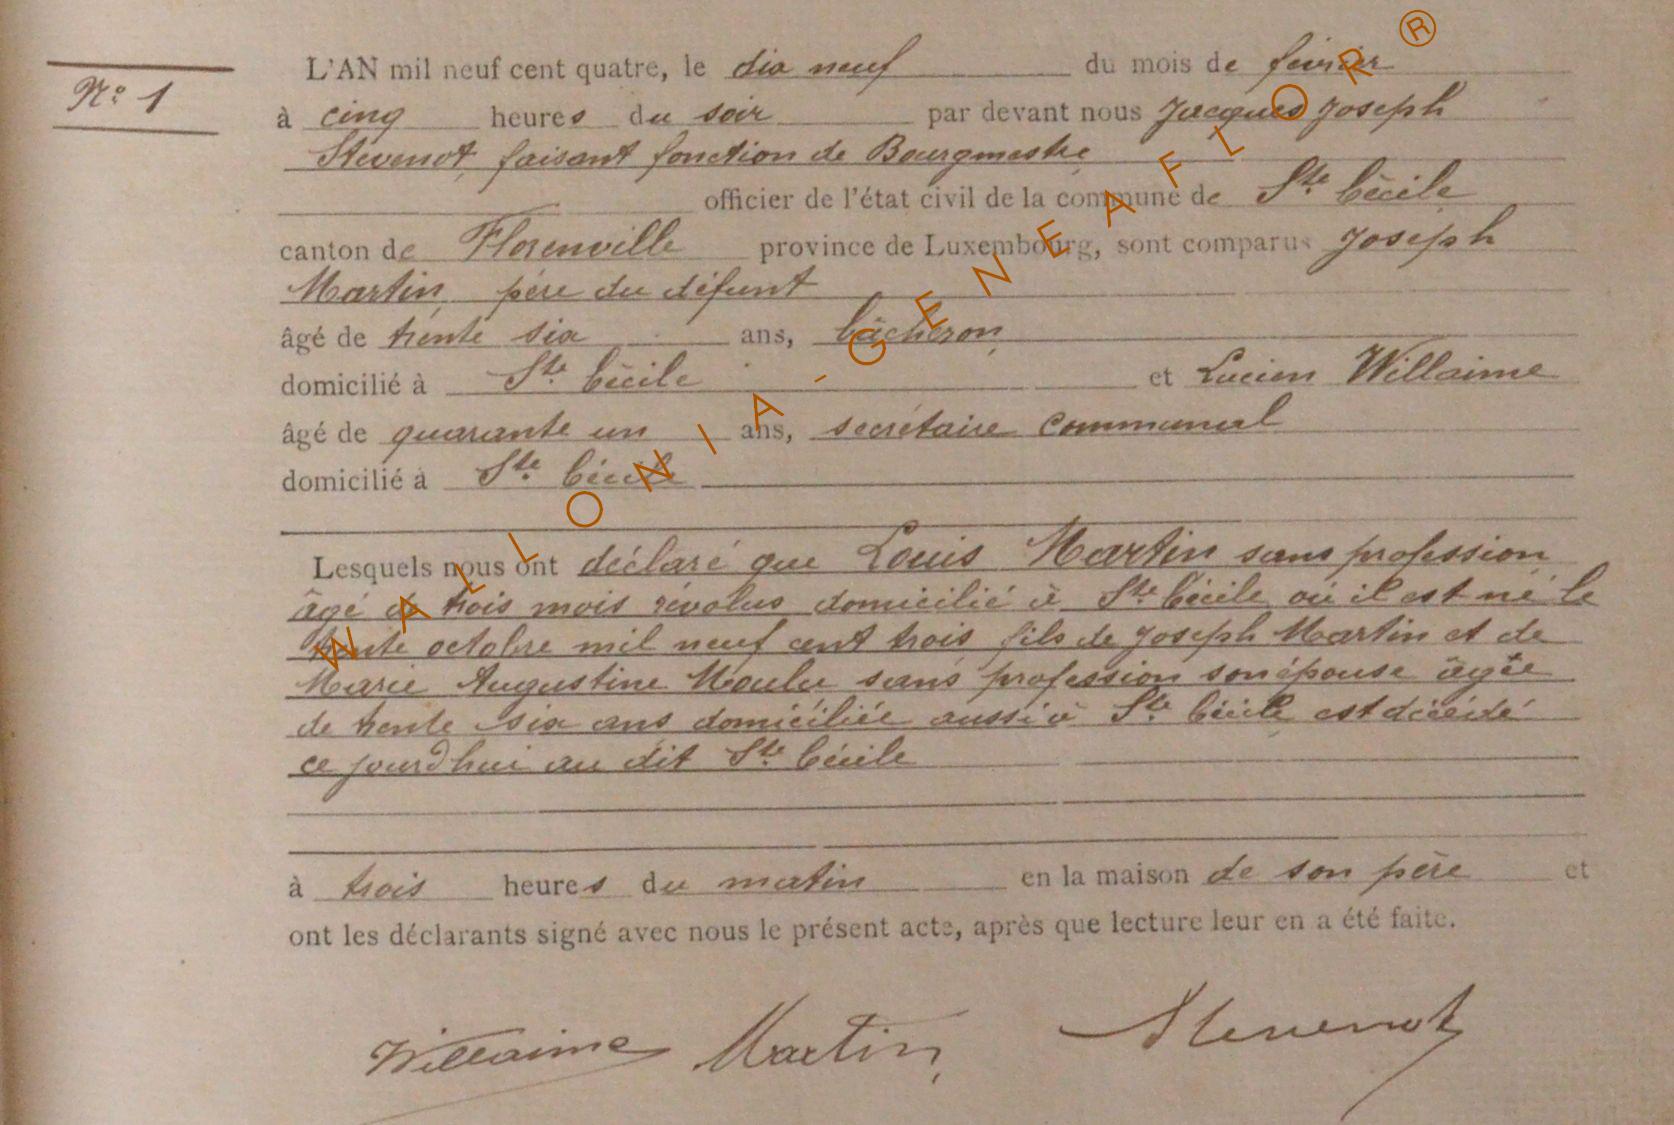 L'AN mil neuf cent quatre, le dix neuf du mois de février
N° 1
à cinq heures du soir par devant nous Jacques Joseph
Stevenot, faisant fonction de Bourgmestre
officier de l'état civil de la commune de Ste Cécile
canton de Florenville province de Luxembourg, sont comparus Joseph
Martin, père du défunt
âgé de trente six ans, bûcheron,
domicilié à Ste Cécile et Lucien Willaime
âgé de quarante un ans, secrétaire communal
domicilié à Ste Cécile
Lesquels nous ont déclaré que Louis Martin sans profession
âgé de trois mois révolus domicilié à Ste Cécile où il est né le
trente octobre mil neuf cent trois fils de Joseph Martin et de
Marie Augustine Moulu sans profession son épouse âgée
de trente six ans domiciliée aussi à Ste Cécile est décédé
ce jourd'hui au dit Ste Cécile
à trois heures du matin en la maison de son père et
ont les déclarants signé avec nous le présent acte, après que lecture leur en a été faite.
Willaime Martin, Stevenot
WALLONIA-GENEAFLOR®